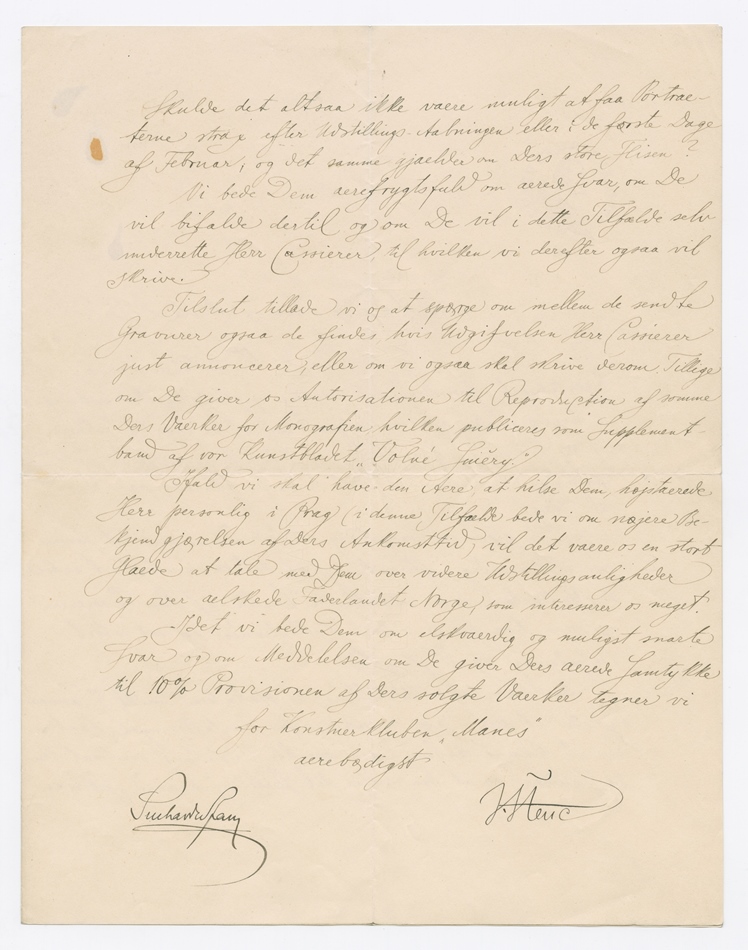 Skulde det altsaa ikke vaere muligt at faa Portrae-
terne strax efter Udstillings-Aabningen eller i de første Dage
af Februar, og det samme gjaelder om Ders store Frisen?
Vi bede Dem aerefrygtsfuld om aerede Svar, om De
vil bifalde dertil og om De vil i dette Tilfælde selv
underrette Herr Cassierer, til hvilken vi derefter ogsaa vil
skrive.
Tilslut tillade vi os at spørge om mellem de sendte
Gravurer ogsaa de findes, hvis Udgifvelsen Herr Cassierer
just annoncerer, eller om vi ogsaa skal skrive derom. Tillige
om De giver os Autorisationen til Reproduction af somme
Ders Vaerker for Monografien hvilken publiceres som Supplement-
band af vor Kunstbladet „Volné Směry."
Ifald vi skal have den Aere, at hilse Dem, højstaerede
Herr personlig i Prag (i denne Tilfælde bede vi om nøjere Be-
kjendgjørelsen af Ders Ankomsttid, vil det vaere os en stort
Glaede at tale med Dem over videre Udstillingsanligheder
og over aelskede Faderlandet Norge, som interesserer os meget.
Idet vi bede Dem om elskvaerdig og muligst snarte
Svar og om Meddelelsen om De giver Ders aerede Samtykke
til 10% Provisionen af Ders solgte Vaerker tegner vi
for Konstnerkluben „Manes"
aerebødigst